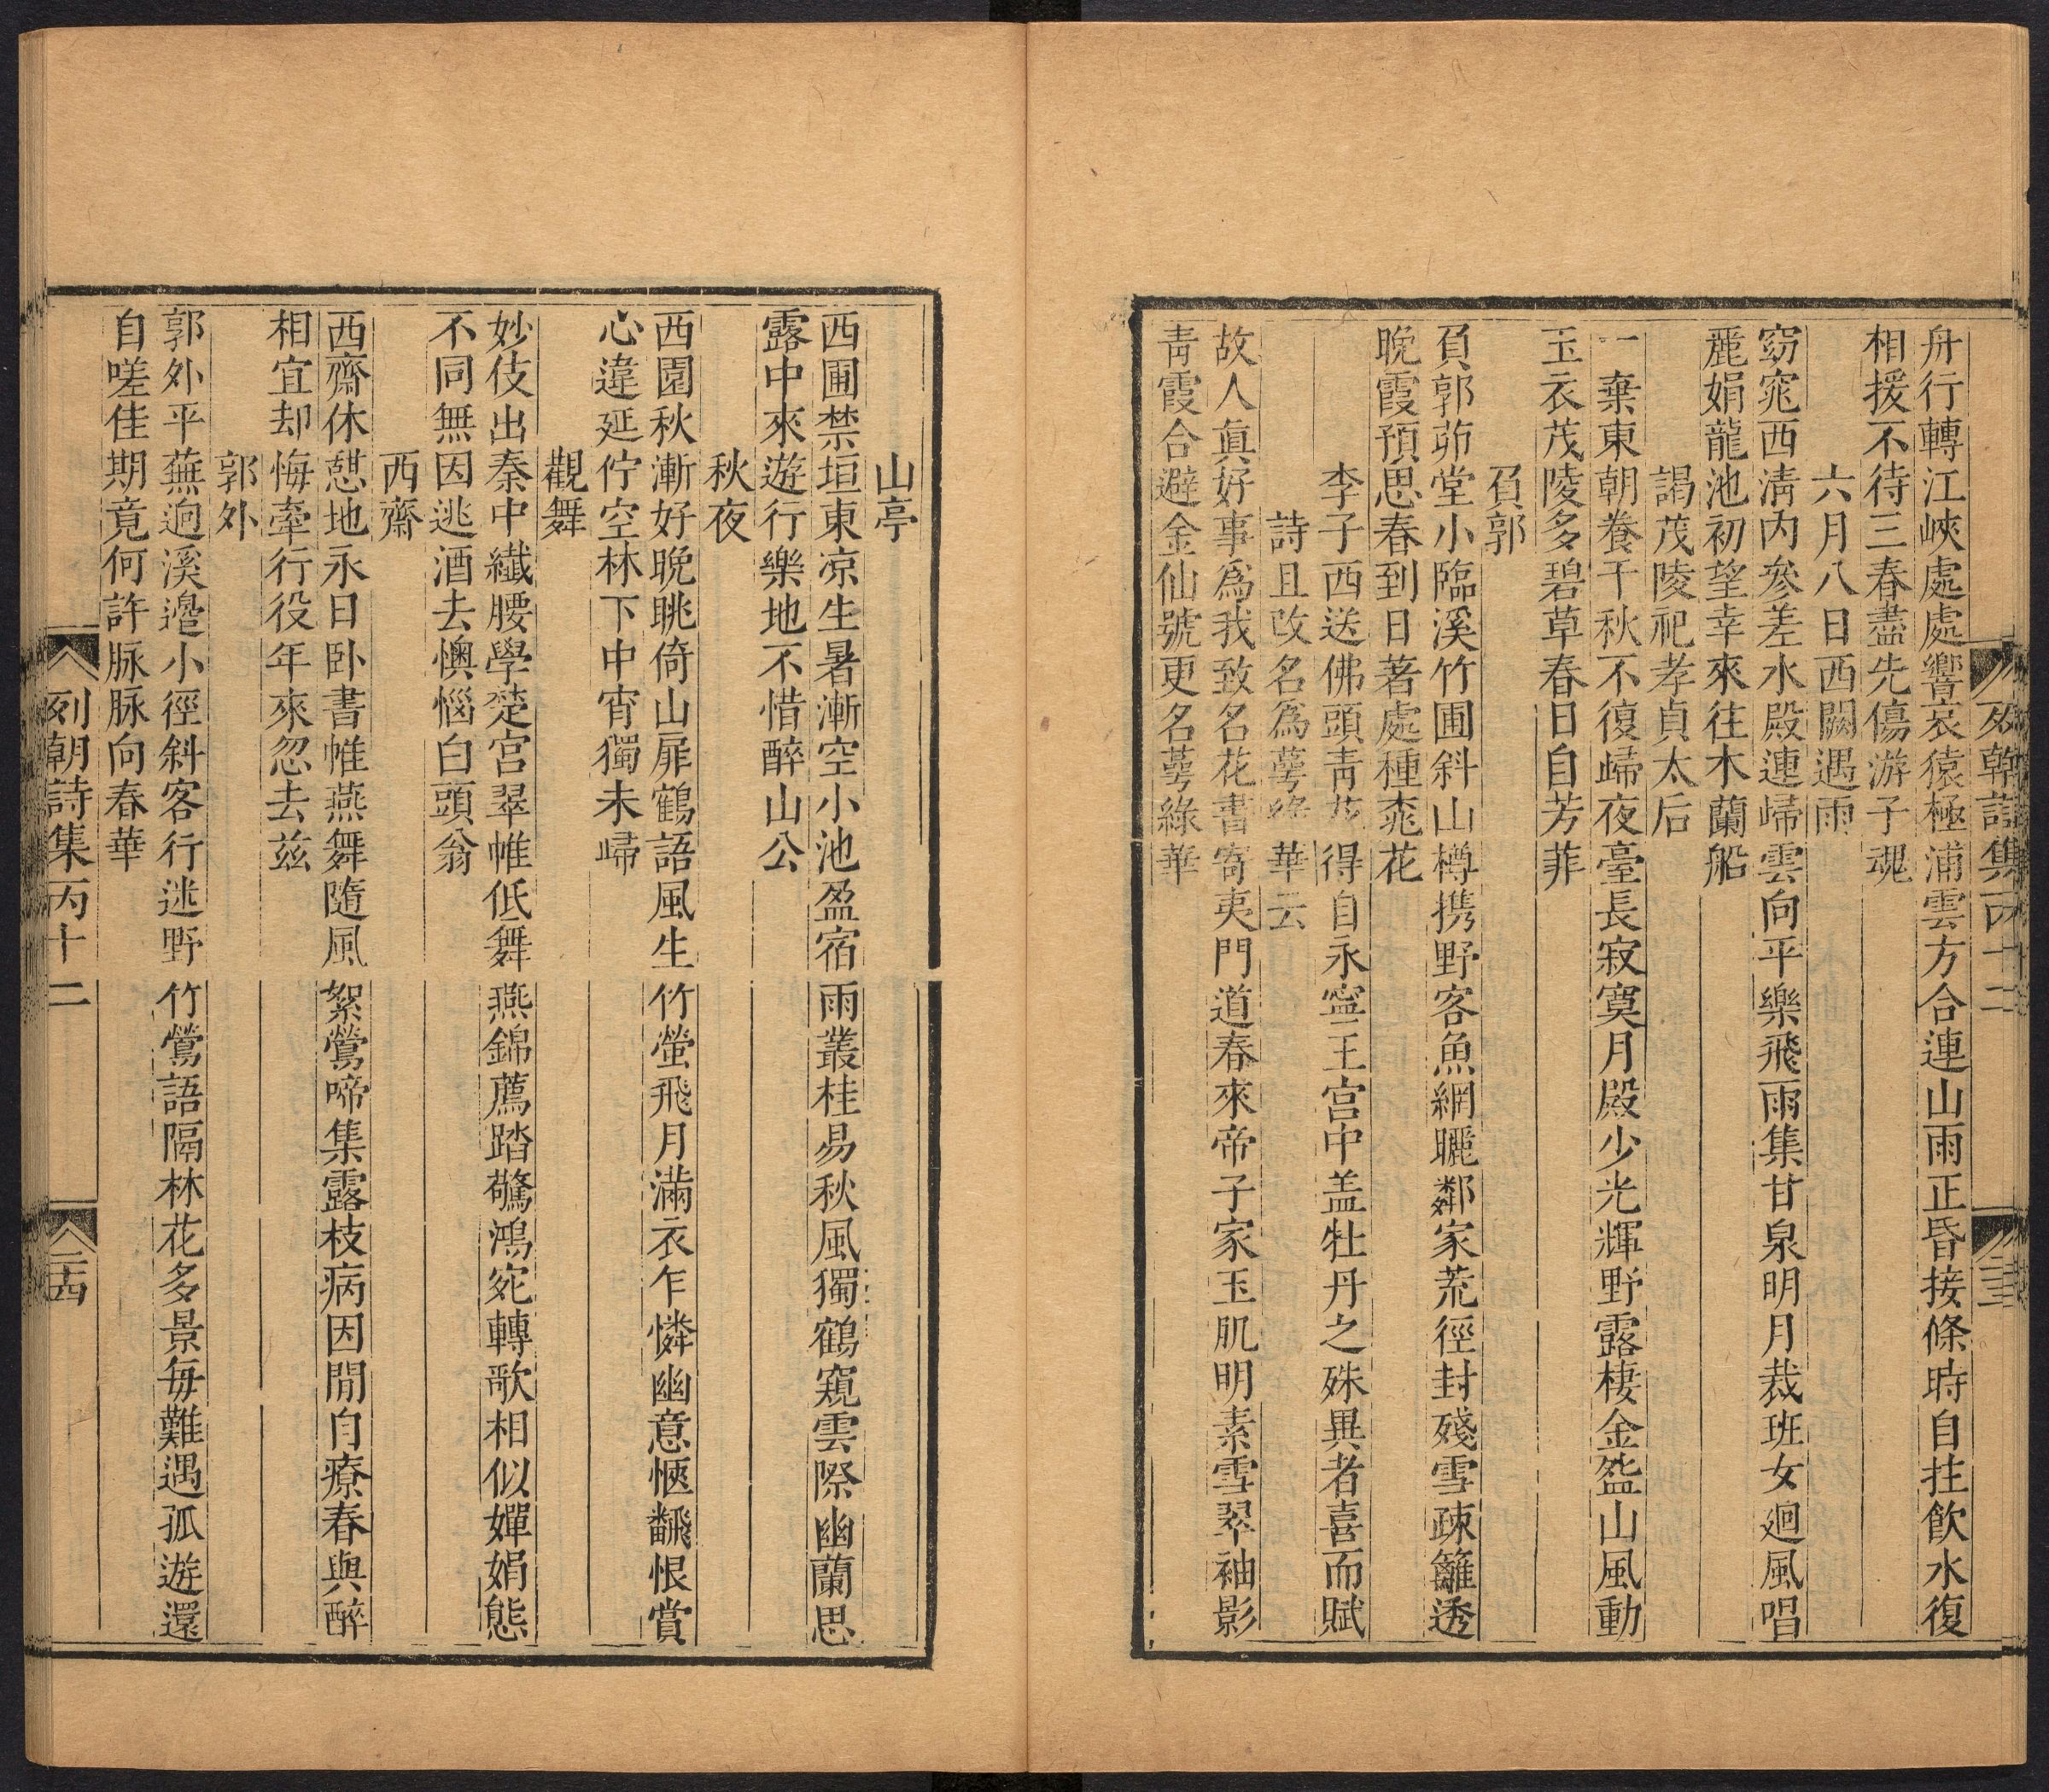 舟行轉江峽處處響哀猿極浦雲方合連山雨正昏接條時自拄飲水復
相援不待三春盡先傷游子魂
六月八日西闕遇雨
窈窕西淸內參差水殿連歸雲向平樂飛雨集甘泉明月裁班女廻風唱
麗娟龍池初望幸來往木蘭船
謁茂陵祀孝貞太后
一棄東朝養千秋不復歸夜臺長寂寞月殿少光輝野露棲金盌山風動
玉衣茂陵多碧草春日自芳菲
負郭
負郭茆堂小臨溪竹圃斜山樽携野客魚網曬鄰家荒徑封殘雪疎籬透
晚霞預思春到日著處種桃花
李子西送佛頭靑花得自永寧王宮中盖牡丹之殊異者喜而賦
詩且改名爲萼綠華云
故人眞好事爲我致名花書寄夷門道春來帝子家玉肌明素雪翠袖影
靑霞合避金仙號更名萼綠華
山亭
西圃禁垣東凉生暑漸空小池盈宿雨叢桂易秋風獨鶴窺雲際幽蘭思
露中來遊行樂地不惜醉山公
秋夜
西園秋漸好晚眺倚山扉鶴語風生竹螢飛月滿衣乍憐幽意愜翻恨賞
心違延佇空林下中宵獨未歸
觀舞
妙伎出秦中纖腰學楚宮翠帷低舞燕錦薦踏驚鴻宛轉歌相似嬋娟態
不同無因逃酒去懊惱白頭翁
西齋
西齋休憇地永日卧書帷燕舞隨風絮鶯啼集露枝病因閒自療春與醉
相宜却悔牽行役年來忽去玆
郭外
郭外平蕪逈溪邉小徑斜客行迷野竹鶯語隔林花多景每難遇孤遊還
自嗟佳期竟何許脉脉向春華
列朝詩集丙十二
二十四